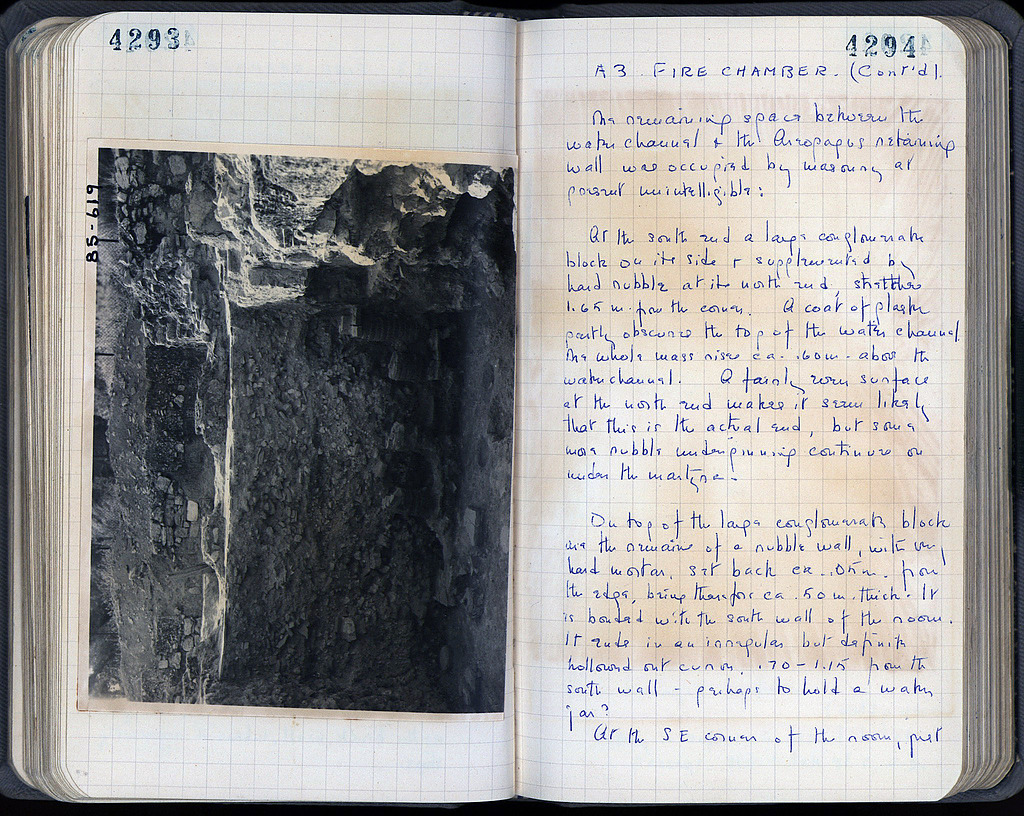 4293
85-619
4294
A3. FIRE CHAMBER. (Cont'd).
The remaining space between the
water channel & the Areopagus retaining
wall was occupied by masonry at
present unintelligible:
At the south end a large conglomerate
block on its side & supplemented by
hard rubble at its north end, stretches
1.65 m. from the corner. A coat of plaster
partly obscures the top of the water channel.
The whole mass rises ca. .60 m. above the
water channel. A fairly even surface
at the north end makes it seem likely
that this is the actual end, but some
more rubble underpinning continues on
under the
On top of the large conglomerate block
are the remains of a rubble wall, with very
hard mortar, set back ca. .05 m. from
the edge, being therefore ca. .50 m. thick. It
is bonded with the south wall of the room.
It ends in an irregular but definite
hollowed out curve, .70-1.15 from the
south wall - perhaps to hold a water
jar?
At the SE corner of the room, just